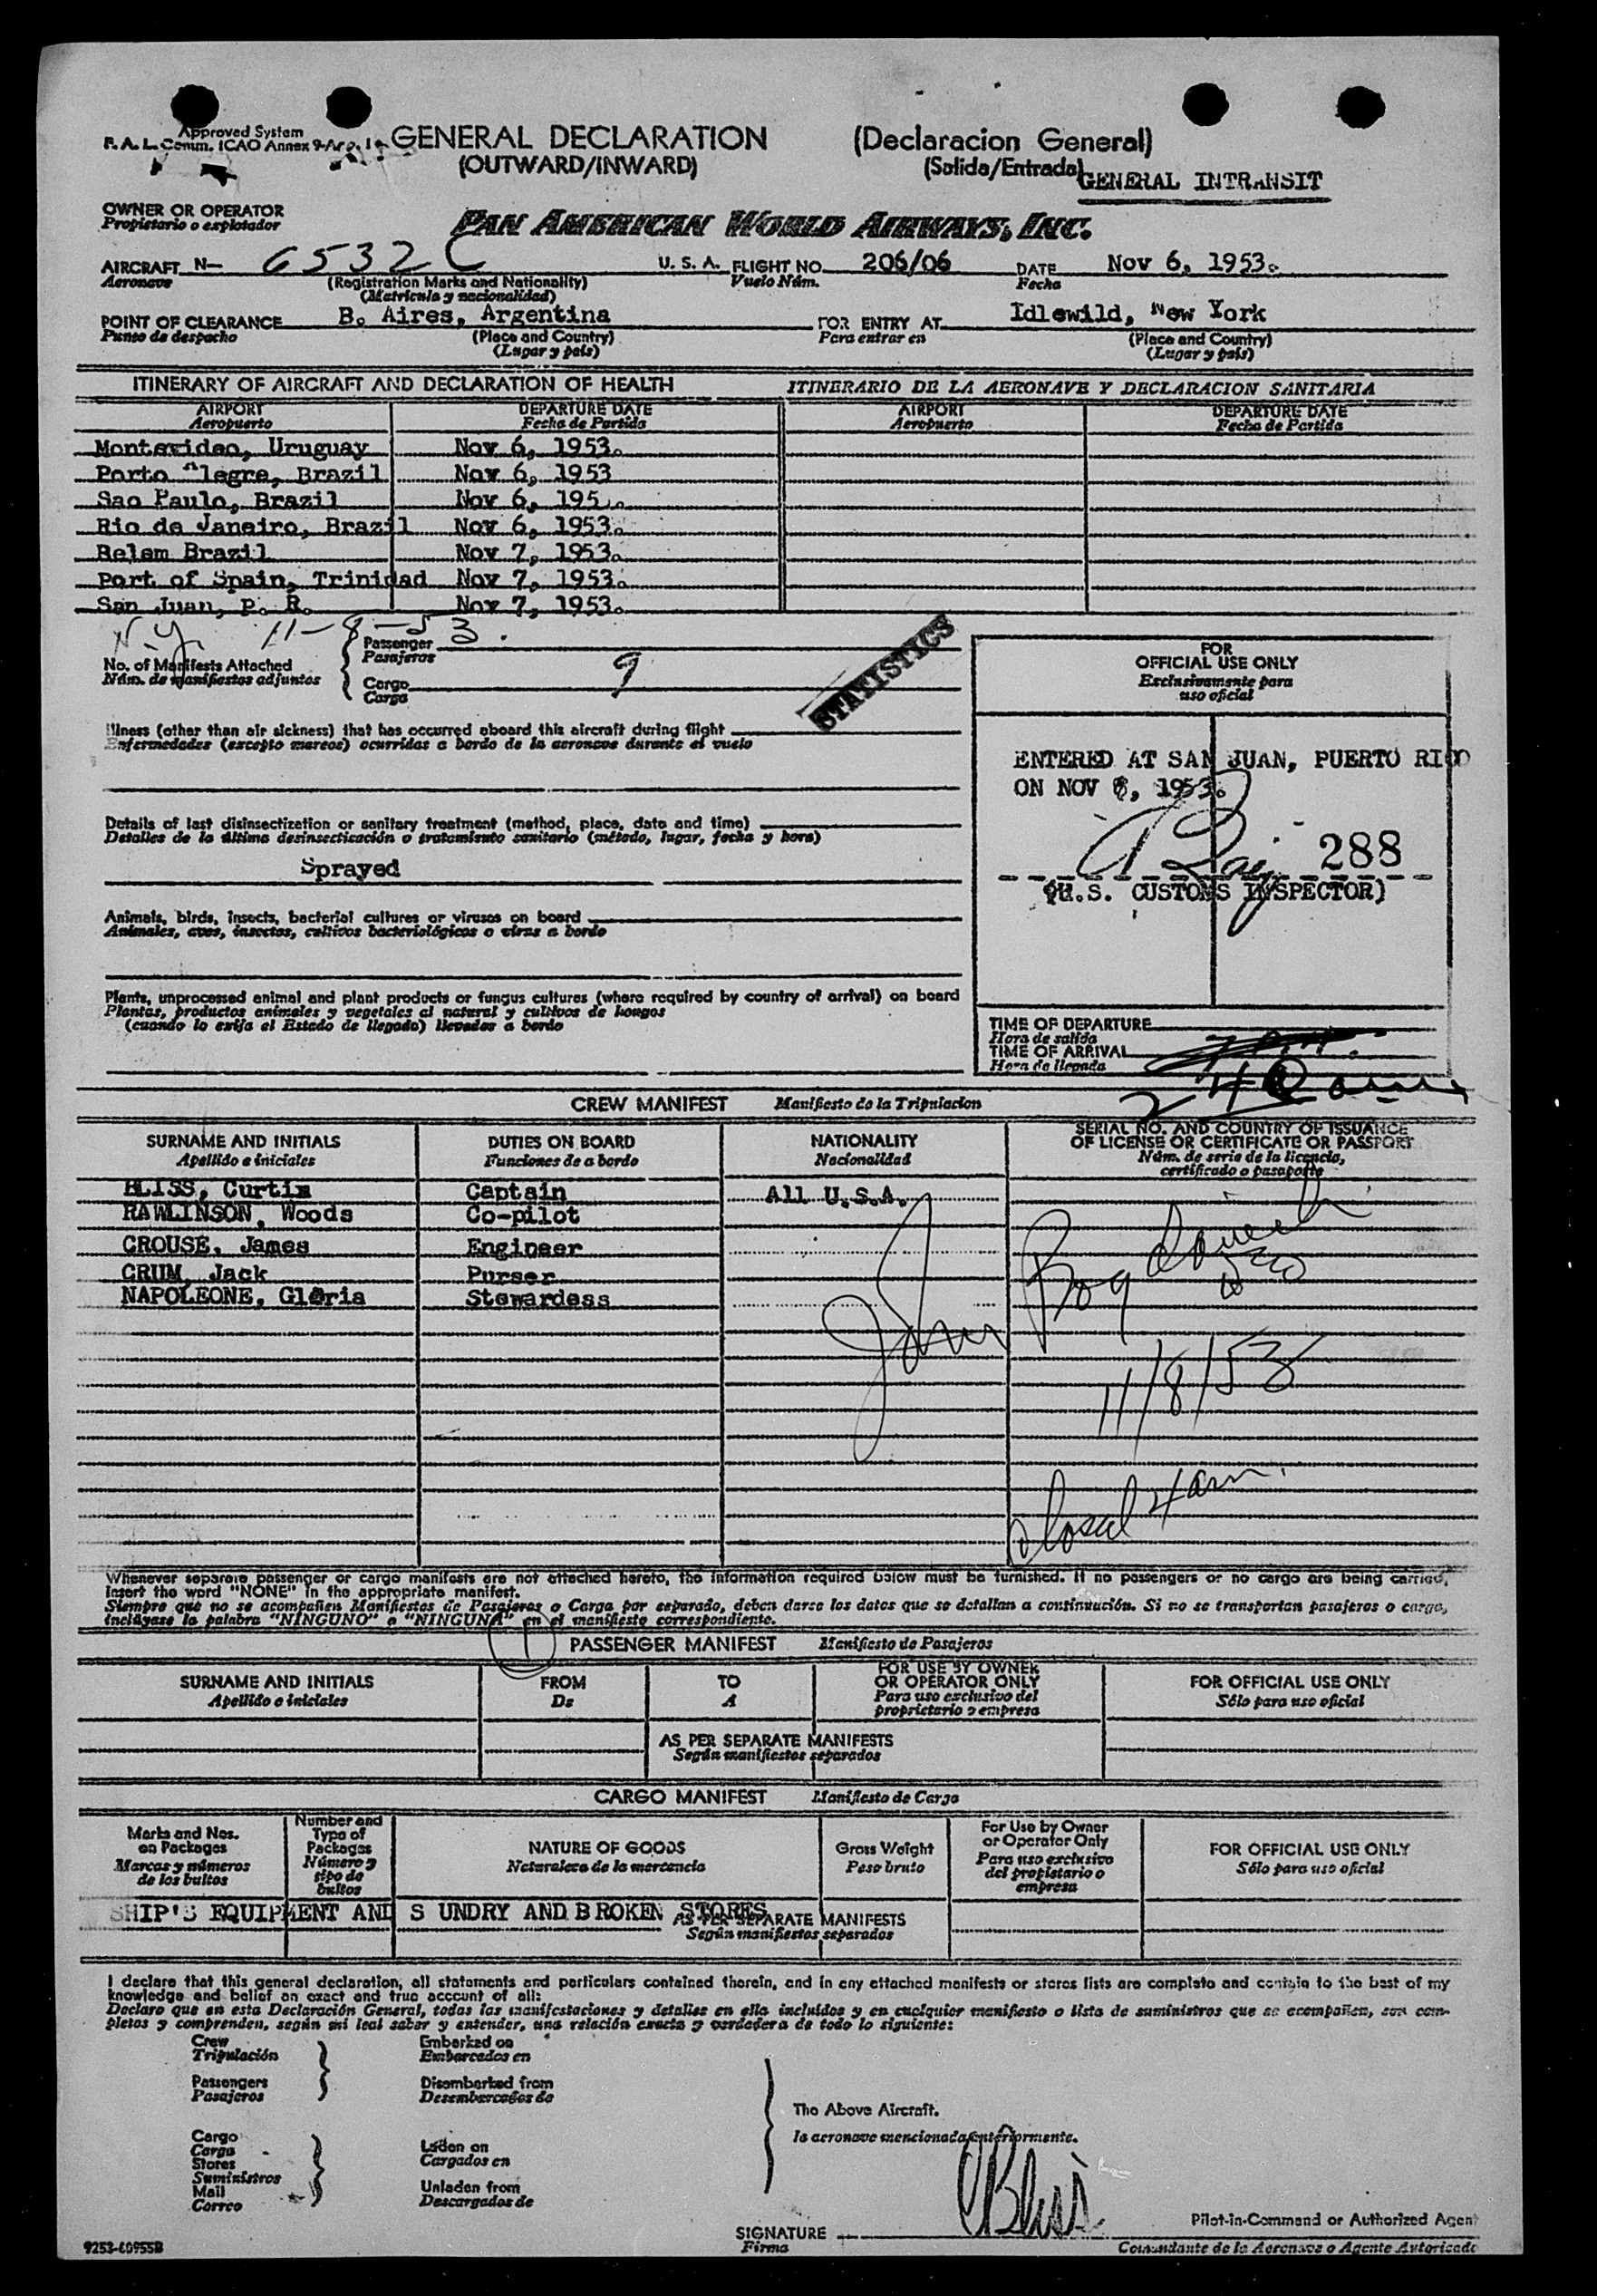 Approved System
F. A. L. Comm. ICAO Annex 9-App. 1
GENERAL DECLARATION (Declaracion General)
(OUTWARD/INWARD) (Salida/Entrada)
GENERAL INTRANSIT
OWNER OR OPERATOR
Propietario o explotador
PAN AMERICAN WORLD AIRWAYS, INC.
AIRCRAFT N- 6532 C U. S. A. FLIGHT NO. 206/06 DATE Nov 6, 1953.
Aeronave (Registration Marks and Nationality) Vuelo Núm. Fecha
(Matrícula y nacionalidad)
POINT OF CLEARANCE B. Aires, Argentina FOR ENTRY AT Idlewild, New York
Punto de despacho (Place and Country) Para entrar en (Place and Country)
(Lugar y país) (Lugar y país)
ITINERARY OF AIRCRAFT AND DECLARATION OF HEALTH ITINERARIO DE LA AERONAVE Y DECLARACION SANITARIA
AIRPORT DEPARTURE DATE AIRPORT DEPARTURE DATE
Aeropuerto Fecha de Partida Aeropuerto Fecha de Partida
Montevideo, Uruguay Nov 6, 1953.
Porto Alegre, Brazil Nov 6, 1953
Sao Paulo, Brazil Nov 6, 195 .
Rio de Janeiro, Brazil Nov 6, 1953.
Belem Brazil Nov 7, 1953.
Port of Spain, Trinidad Nov 7, 1953.
San Juan, P. R. Nov 7, 1953.
N.Y. 11-8-53.
No. of Manifests Attached
Núm. de manifiestos adjuntos
Passenger
Pasajeros
Cargo 9
Carga
STATISTICS
FOR
OFFICIAL USE ONLY
Exclusivamente para
uso oficial
Illness (other than air sickness) that has occurred aboard this aircraft during flight
Enfermedades (excepto mareos) ocurridas a bordo de la aeronave durante el vuelo
ENTERED AT SAN JUAN, PUERTO RICO
ON NOV 8, 1953.
288
(U.S. CUSTOMS INSPECTOR)
Details of last disinsectization or sanitary treatment (method, place, date and time)
Detalles de la última desinsectización o tratamiento sanitario (método, lugar, fecha y hora)
Sprayed
Animals, birds, insects, bacterial cultures or viruses on board
Animales, aves, insectos, cultivos bacteriológicos o virus a bordo
Plants, unprocessed animal and plant products or fungus cultures (where required by country of arrival) on board
Plantas, productos animales y vegetales al natural y cultivos de hongos
(cuando lo exija el Estado de llegada) llevados a bordo
TIME OF DEPARTURE
Hora de salida
TIME OF ARRIVAL
Hora de llegada
CREW MANIFEST Manifiesto de la Tripulacion
SURNAME AND INITIALS DUTIES ON BOARD NATIONALITY SERIAL NO. AND COUNTRY OF ISSUANCE
OF LICENSE OR CERTIFICATE OR PASSPORT
Apellido e iniciales Funciones de a bordo Nacionalidad Núm. de serie de la licencia,
certificado o pasaporte
BLISS, Curtis Captain All U.S.A.
RAWLINSON, Woods Co-pilot
CROUSE, James Engineer
CRUM, Jack Purser
NAPOLEONE, Gloria Stewardess
John
11/8/53
closed 4 am.
Whenever separate passenger or cargo manifests are not attached hereto, the information required below must be furnished. If no passengers or no cargo are being carried,
insert the word "NONE" in the appropriate manifest.
Siempre que no se acompañen Manifiestos de Pasajeros o Carga por separado, deben darse los datos que se detallan a continuación. Si no se transportan pasajeros o carga,
inclúyase la palabra "NINGUNO" o "NINGUNA" en el manifiesto correspondiente.
1
PASSENGER MANIFEST Manifiesto de Pasajeros
SURNAME AND INITIALS FROM TO FOR USE BY OWNER
OR OPERATOR ONLY FOR OFFICIAL USE ONLY
Apellido e iniciales De A Para uso exclusivo del
proprietario o empresa Sólo para uso oficial
AS PER SEPARATE MANIFESTS
Según manifiestos separados
CARGO MANIFEST Manifiesto de Carga
Marks and Nos.
on Packages
Marcas y números
de los bultos
Number and
Type of
Packages
Número y
tipo de
bultos
NATURE OF GOODS
Naturaleza de la mercancía
Gross Weight
Peso bruto
For Use by Owner
or Operator Only
Para uso exclusivo
del propietario o
empresa
FOR OFFICIAL USE ONLY
Sólo para uso oficial
SHIP'S EQUIPMENT AND S UNDRY AND BROKEN STORES
AS PER SEPARATE MANIFESTS
Según manifiestos separados
I declare that this general declaration, all statements and particulars contained therein, and in any attached manifests or stores lists are complete and contain to the best of my
knowledge and belief an exact and true account of all:
Declaro que en esta Declaración General, todas las manifestaciones y detalles en ella incluídos y en cualquier manifiesto o lista de suministros que se acompañen, son com-
pletos y comprenden, según mi leal saber y entender, una relación exacta y verdadera de todo lo siguiente:
Crew Embarked on
Tripulación Embarcados en
Passengers Disembarked from
Pasajeros Desembarcados de
The Above Aircraft.
la aeronave mencionada anteriormente.
Cargo
Carga Laden on
Stores Cargados en
Suministros
Mail Unladen from
Correo Descargados de
CBliss
SIGNATURE Pilot-in-Command or Authorized Agent
Firma Comandante de la Aeronave o Agente Autorizado
9253-60955B